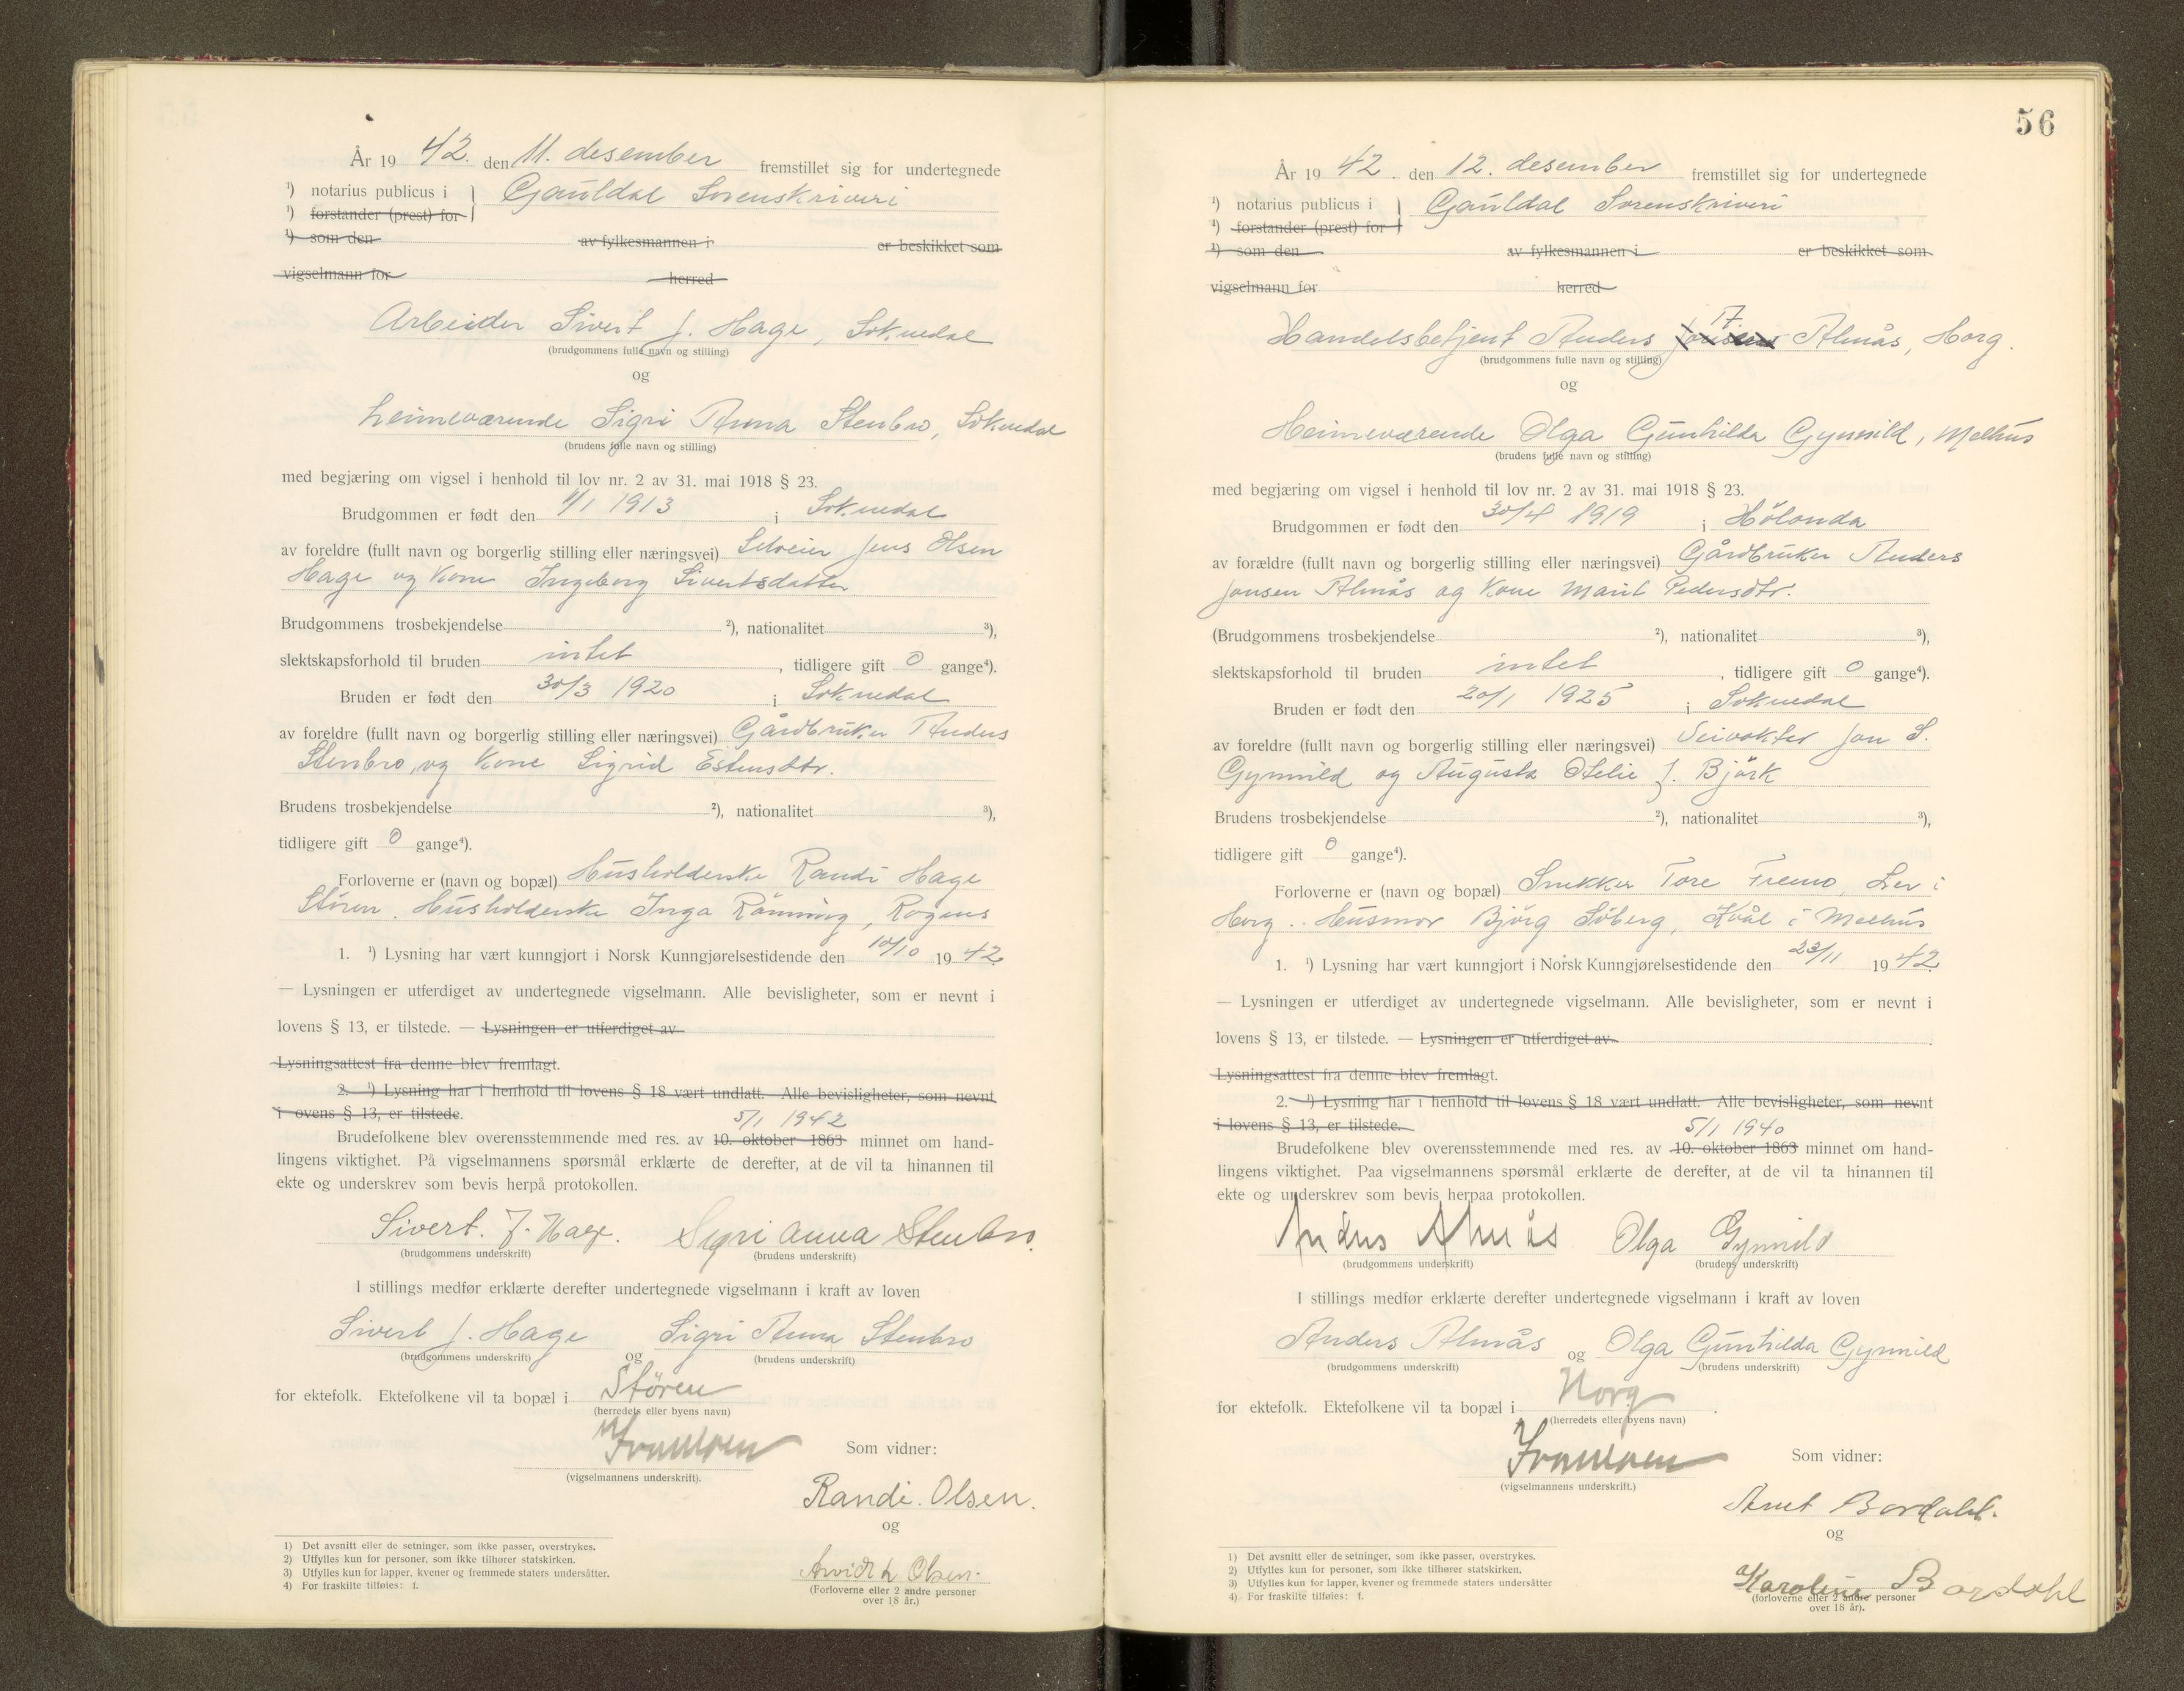 År 19 42. den 11. desember fremstillet sig for undertegnede
¹) notarius publicus i } Gauldal Sorenskriveri
¹) forstander (prest) for
¹) som den av fylkesmannen i er beskikket som
vigselmann for herred
Arbeider Sivert J. Hage, Soknedal
(brudgommens fulle navn og stilling)
og
heimeværende Sigri Anna Stenbro, Soknedal
(brudens fulle navn og stilling)
med begjæring om vigsel i henhold til lov nr. 2 av 31. mai 1918 § 23.
Brudgommen er født den 1/1 1913 i Soknedal
av foreldre (fullt navn og borgerlig stilling eller næringsvei) Selveier Jens Olsen
Hage og kone Ingeborg Sivertsdatter
Brudgommens trosbekjendelse ²), nationalitet ³),
slektskapsforhold til bruden intet, tidligere gift 0 gange⁴).
Bruden er født den 30/3 1920 i Soknedal
av foreldre (fullt navn og borgerlig stilling eller næringsvei) Gårdbruker Anders
Stenbro, og kone Sigrid Estensdtr.
Brudens trosbekjendelse ²), nationalitet ³),
tidligere gift 0 gange⁴).
Forloverne er (navn og bopæl) Husholderske Randi Hage
Støren. Husholderske Inga Rönning, Rogens
1. ¹) Lysning har vært kunngjort i Norsk Kunngjørelsestidende den 10/10 19 42.
— Lysningen er utferdiget av undertegnede vigselmann. Alle bevisligheter, som er nevnt i
lovens § 13, er tilstede. — Lysningen er utferdiget av
Lysningsattest fra denne blev fremlagt.
2. ¹) Lysning har i henhold til lovens § 18 vært undlatt. Alle bevisligheter, som nevnt
i ovens § 13, er tilstede.
5/1 1942
Brudefolkene blev overensstemmende med res. av 10. oktober 1863 minnet om hand-
lingens viktighet. På vigselmannens spørsmål erklærte de derefter, at de vil ta hinannen til
ekte og underskrev som bevis herpå protokollen.
Sivert. J. Hage. Sigri Anna Stenbro.
(brudgommens underskrift) (brudens underskrift)
I stillings medfør erklærte derefter undertegnede vigselmann i kraft av loven
Sivert J. Hage og Sigri Anna Stenbro
(brudgommens underskrift) (brudens underskrift)
for ektefolk. Ektefolkene vil ta bopæl i Støren
(herredets eller byens navn)
Som vidner:
(vigselmannens underskrift).
Randi. Olsen.
og
Arvid L Olsen.
(Forloverne eller 2 andre personer
over 18 år.)
1) Det avsnitt eller de setninger, som ikke passer, overstrykes.
2) Utfylles kun for personer, som ikke tilhører statskirken.
3) Utfylles kun for lapper, kvener og fremmede staters undersåtter.
4) For fraskilte tilføies: f.
56
År 19 42. den 12. desember fremstillet sig for undertegnede
¹) notarius publicus i } Gauldal Sorenskriveri
¹) forstander (prest) for
¹) som den av fylkesmannen i er beskikket som
vigselmann for herred
17.
Handelsbetjent Anders Jonsen Almås, Horg.
(brudgommens fulle navn og stilling)
og
Heimeværende Olga Gunhilda Gynnild, Melhus
(brudens fulle navn og stilling)
med begjæring om vigsel i henhold til lov nr. 2 av 31. mai 1918 § 23.
Brudgommen er født den 30/4 1919 i Hölonda
av forældre (fullt navn og borgerlig stilling eller næringsvei) Gårdbruker Anders
Jonsen Almås og kone Marit Pedersdtr.
(Brudgommens trosbekjendelse ²), nationalitet ³),
slektskapsforhold til bruden intet, tidligere gift 0 gange⁴).
Bruden er født den 20/1 1925 i Soknedal
av foreldre (fullt navn og borgerlig stilling eller næringsvei) Veivokter Jon S.
Gynnild og Augusta Otelie J. Björk
Brudens trosbekjendelse ²), nationalitet ³),
tidligere gift 0 gange⁴).
Forloverne er (navn og bopæl) Snekker Tore Fremo, Ler i
Horg. Husmor Björg Söberg, Kvål i Melhus
1. ¹) Lysning har vært kunngjort i Norsk Kunngjørelsestidende den 23/11 19 42.
— Lysningen er utferdiget av undertegnede vigselmann. Alle bevisligheter, som er nevnt i
lovens § 13, er tilstede. — Lysningen er utferdiget av .
Lysningsattest fra denne blev fremlagt.
2. ¹) Lysning har i henhold til lovens § 18 vært undlatt. Alle bevisligheter, som nevnt
i lovens § 13, er tilstede.
5/1 1940
Brudefolkene blev overensstemmende med res. av 10. oktober 1863 minnet om hand-
lingens viktighet. Paa vigselmannens spørsmål erklærte de derefter, at de vil ta hinannen til
ekte og underskrev som bevis herpaa protokollen.
Anders Almås Olga Gynnild
(brudgommens underskrift) (brudens underskrift)
I stillings medfør erklærte derefter undertegnede vigselmann i kraft av loven
Anders Almås og Olga Gunhilda Gynnild
(brudgommens underskrift) (brudens underskrift)
for ektefolk. Ektefolkene vil ta bopæl i Horg.
(herredets eller byens navn)
Som vidner:
(vigselmannens underskrift.)
Arnt Bordahl.
og
Karoline Bordahl
(forloverne eller 2 andre personer
over 18 år).
1) Det avsnitt eller de setninger, som ikke passer, overstrykes.
2) Utfylles kun for personer, som ikke tilhører statskirken.
3) Utfylles kun for lapper, kvener og fremmede staters undersåtter
4) For fraskilte tilføies: f.